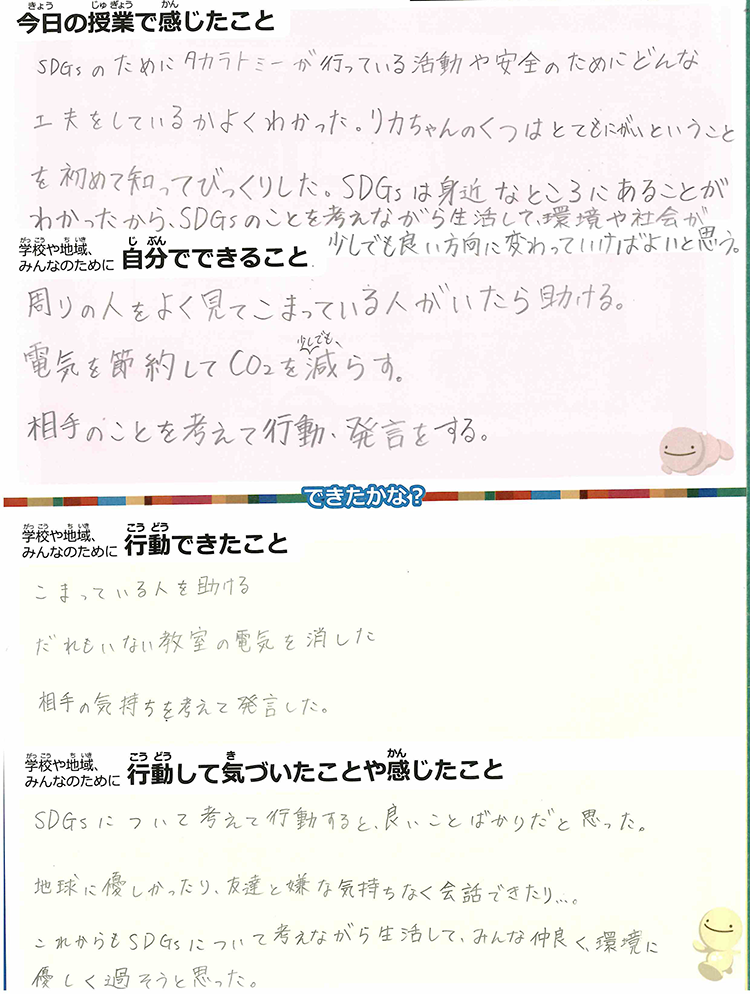 きょう じゅぎょう かん
今日の授業で感じたこと
SDGsのためにタカラトミーが行っている活動や安全のためにどんな
工夫をしているかよくわかった。リカちゃんのくつはとてもにがいということ
を初めて知ってびっくりした。SDGsは身近なところにあることが
わかったから、SDGsのことを考えながら生活して、環境や社会が
少しでも良い方向に変わっていけばよいと思う。
がっこう ちいき じぶん
学校や地域、
みんなのために 自分でできること
周りの人をよく見てこまっている人がいたら助ける。
少しでも、
電気を節約してCO2を減らす。
相手のことを考えて行動、発言をする。
できたかな?
がっこう ちいき こうどう
学校や地域、
みんなのために 行動できたこと
こまっている人を助ける
だれもいない教室の電気を消した
相手の気持ちを考えて発言した。
がっこう ちいき こうどう き かん
学校や地域、
みんなのために 行動して気づいたことや感じたこと
SDGsについて考えて行動すると、良いことばかりだと思った。
地球に優しかったり、友達と嫌な気持ちなく会話できたり…。
これからもSDGsについて考えながら生活して、みんな仲良く、環境に
優しく過そうと思った。